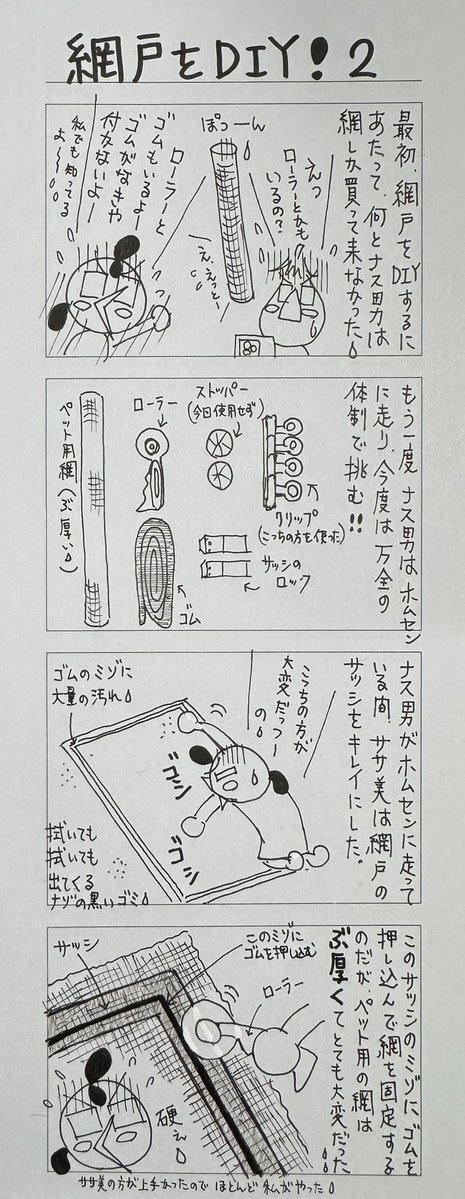 網戸をDIY!2
最初、網戸をDIYするに
あたって、何とナス男は
網しか買って来なかった
えっ
ローラーとかも
いるの?
え、えっとー
ぽつーん
ローラーと
ゴムもいるよー
ゴムがなきゃ
付かないよー
私でも知ってる
よ〜
もう一度、ナス男はホムセン
に走り、今度は万全の
体制で挑む!!
ストッパー
(今日使用せず)
ローラー
ペット用網(ぶ厚い)
クリップ
(こっちの方を使った)
サッシの
ロック
ゴム
ナス男がホムセンに走って
いる間、ササ美は網戸の
サッシをキレイにした。
こっちの方が
大変だっつー
の
ゴムのミゾに
大量の汚れ
ゴシ
ゴシ
拭いても
拭いても
出てくる
ナゾの黒いゴミ
このサッシのミゾにゴムを
押し込んで網を固定する
のだが、ペット用の網は
ぶ厚くてとても大変だった
このミゾに
ゴムを押し込む
サッシ
ローラー
硬ぇ
ササ美の方が上手かったので ほとんど私がやった